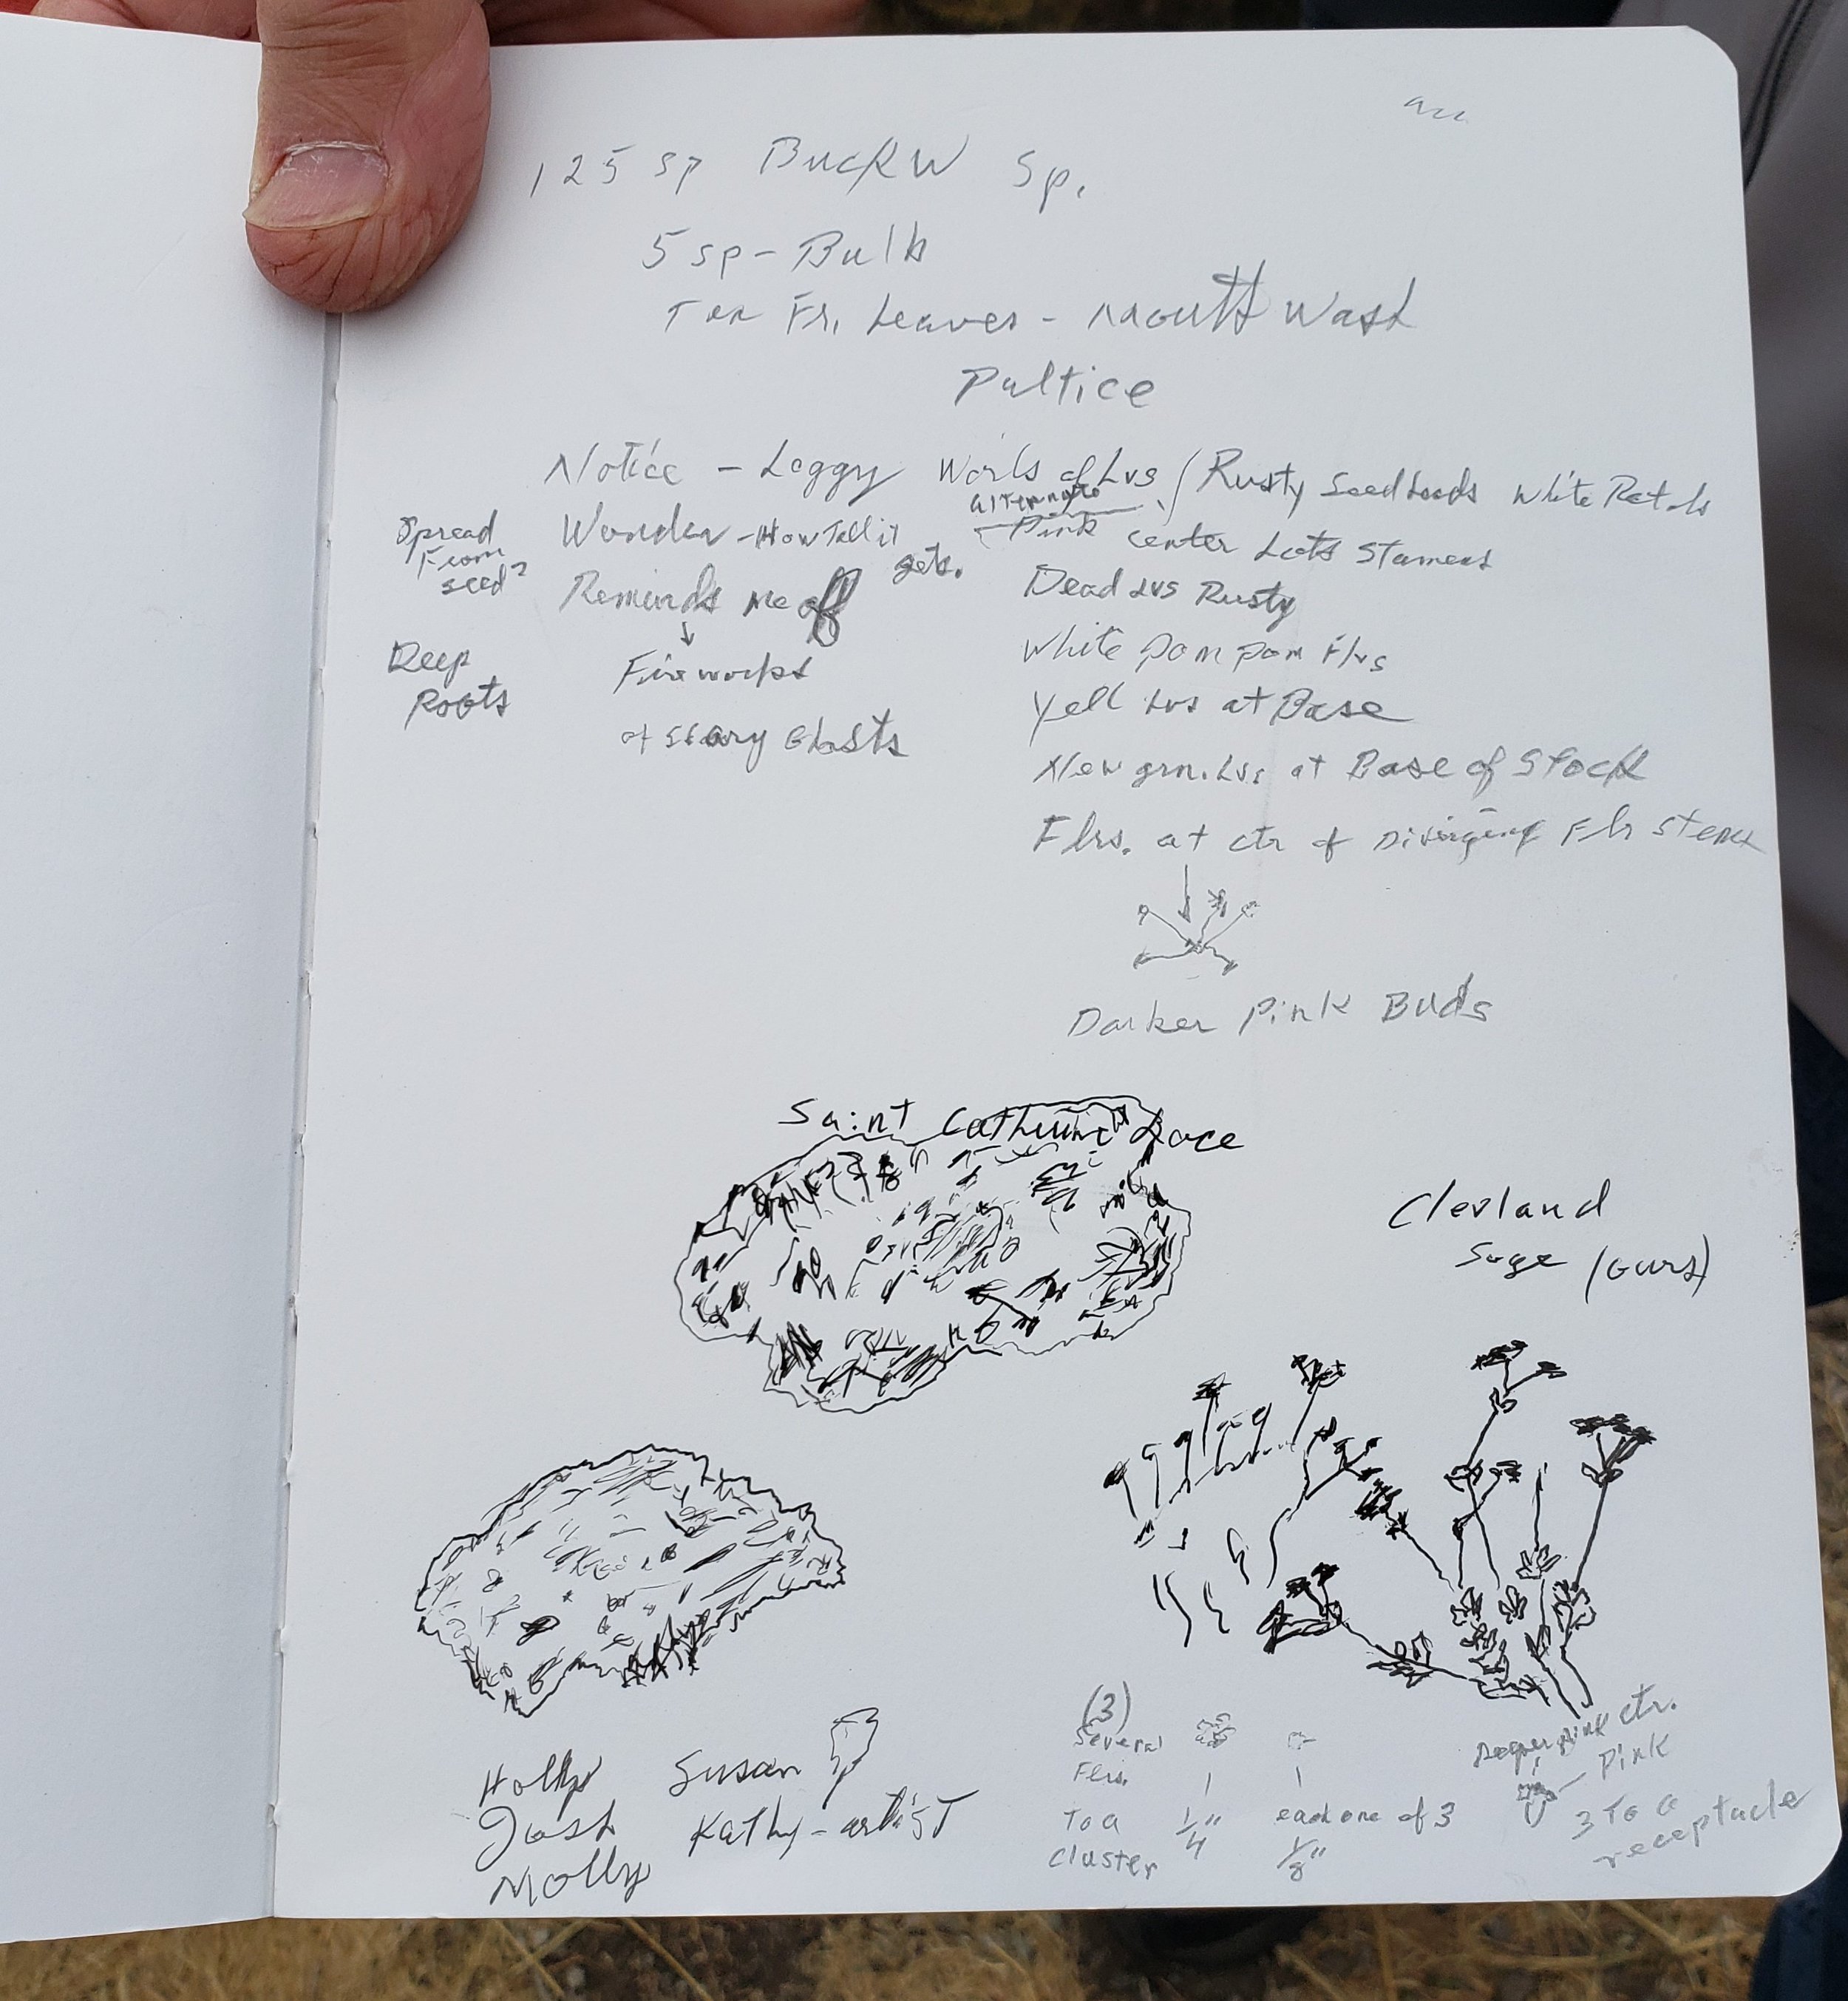 125 sp BuckW Sp.
5 sp - Bulb
Fr. Leaves - Mouth Wash
Pultice
Notice - Leggy Worls of Lvs / Rusty Seed heads White Petals
alternate
Spread From seed?
Wonder - How Tall it gets.
Pink center Lots Stamens
Reminds me off
Dead Lvs Rusty
Deep Roots
Fireworks
White Pom pom Flrs
of Scary Ghosts
Yell Lvs at Base
New grn. Lvs at Base of Stock
Flrs. at ctr of Diverging Flr Stems
Darker Pink Buds
Saint Catherine Lace
Clevland
Sage (ours)
Holly
Josh
Molly
Susan
Kathy - artist
(3)
Several
Flrs.
To a
cluster
1/4"
each one of 3
1/8"
Deeper pink ctr.
Pink
3 To a
receptacle